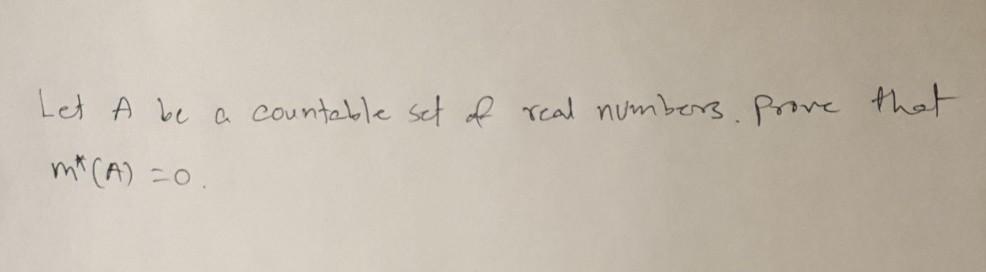 Let A be a countable set of real numbers. Prove that
m*(A) = 0.